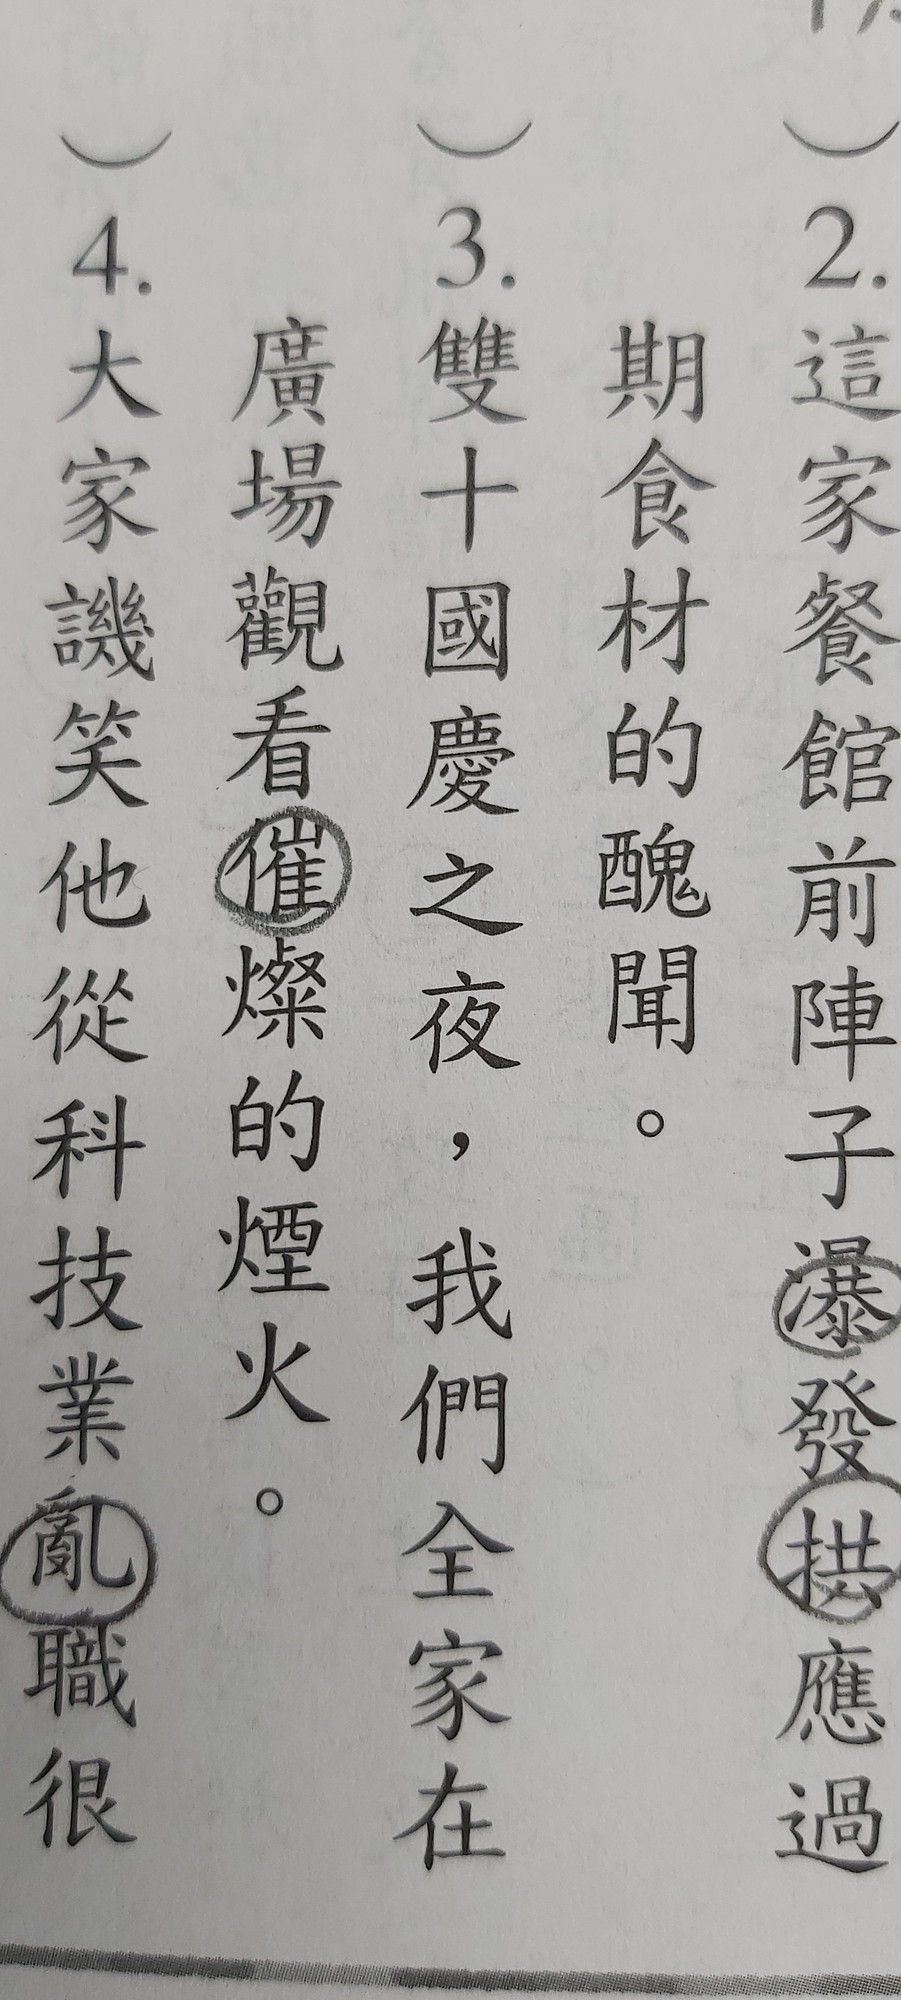 )2.這家餐館前陣子瀑發拱應過
期食材的醜聞。
)3.雙十國慶之夜,我們全家在
廣場觀看催燦的煙火。
)4.大家譏笑他從科技業亂職很